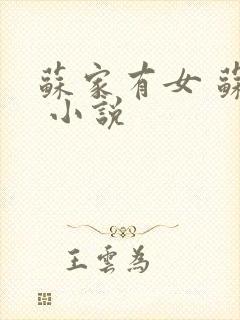 蘇家有女 蘇
小説
王雲為